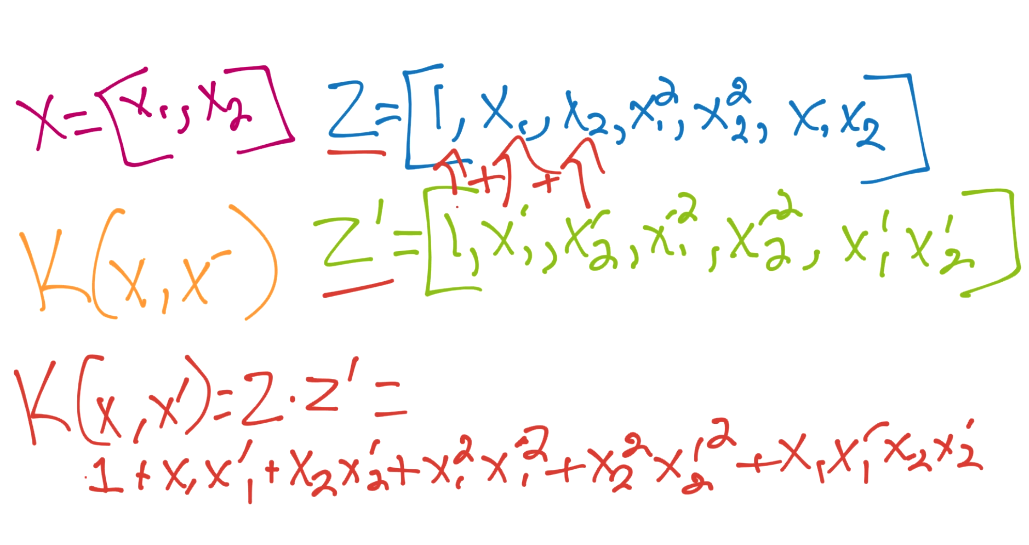 X = [x₁, x₂] Z = [1, x₁, x₂, x₁², x₂², x₁x₂]
↑ + ↑ + ↑
K(x, x') Z' = [1, x₁', x₂', x₁'², x₂'², x₁'x₂']
K(x, x') = Z · Z' =
1 + x₁x₁' + x₂x₂' + x₁²x₁'² + x₂²x₂'² + x₁x₁'x₂x₂'